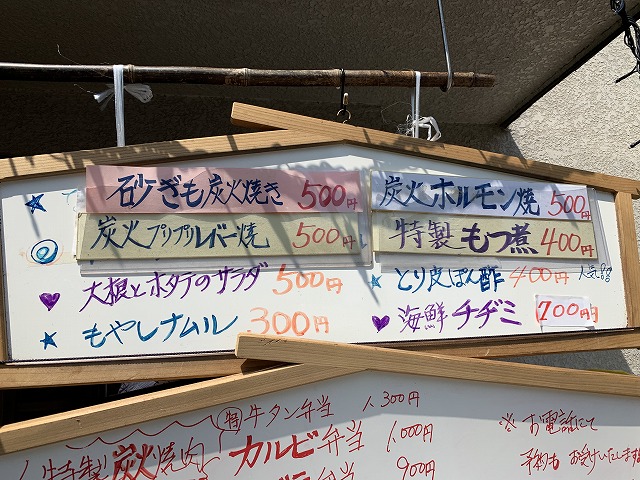 砂ぎも炭火焼き 500円
炭火プリプリレバー焼 500円
大根とホタテのサラダ 500円
もやしナムル 300円
炭火ホルモン焼 500円
特製もつ煮 400円
とり皮ぽん酢 400円 人気
海鮮チヂミ 700円
特製炭火焼肉
特 牛タン弁当 1,300円
カルビ弁当 1,000円
弁当 900円
※お電話にて
予約もお受けいたします